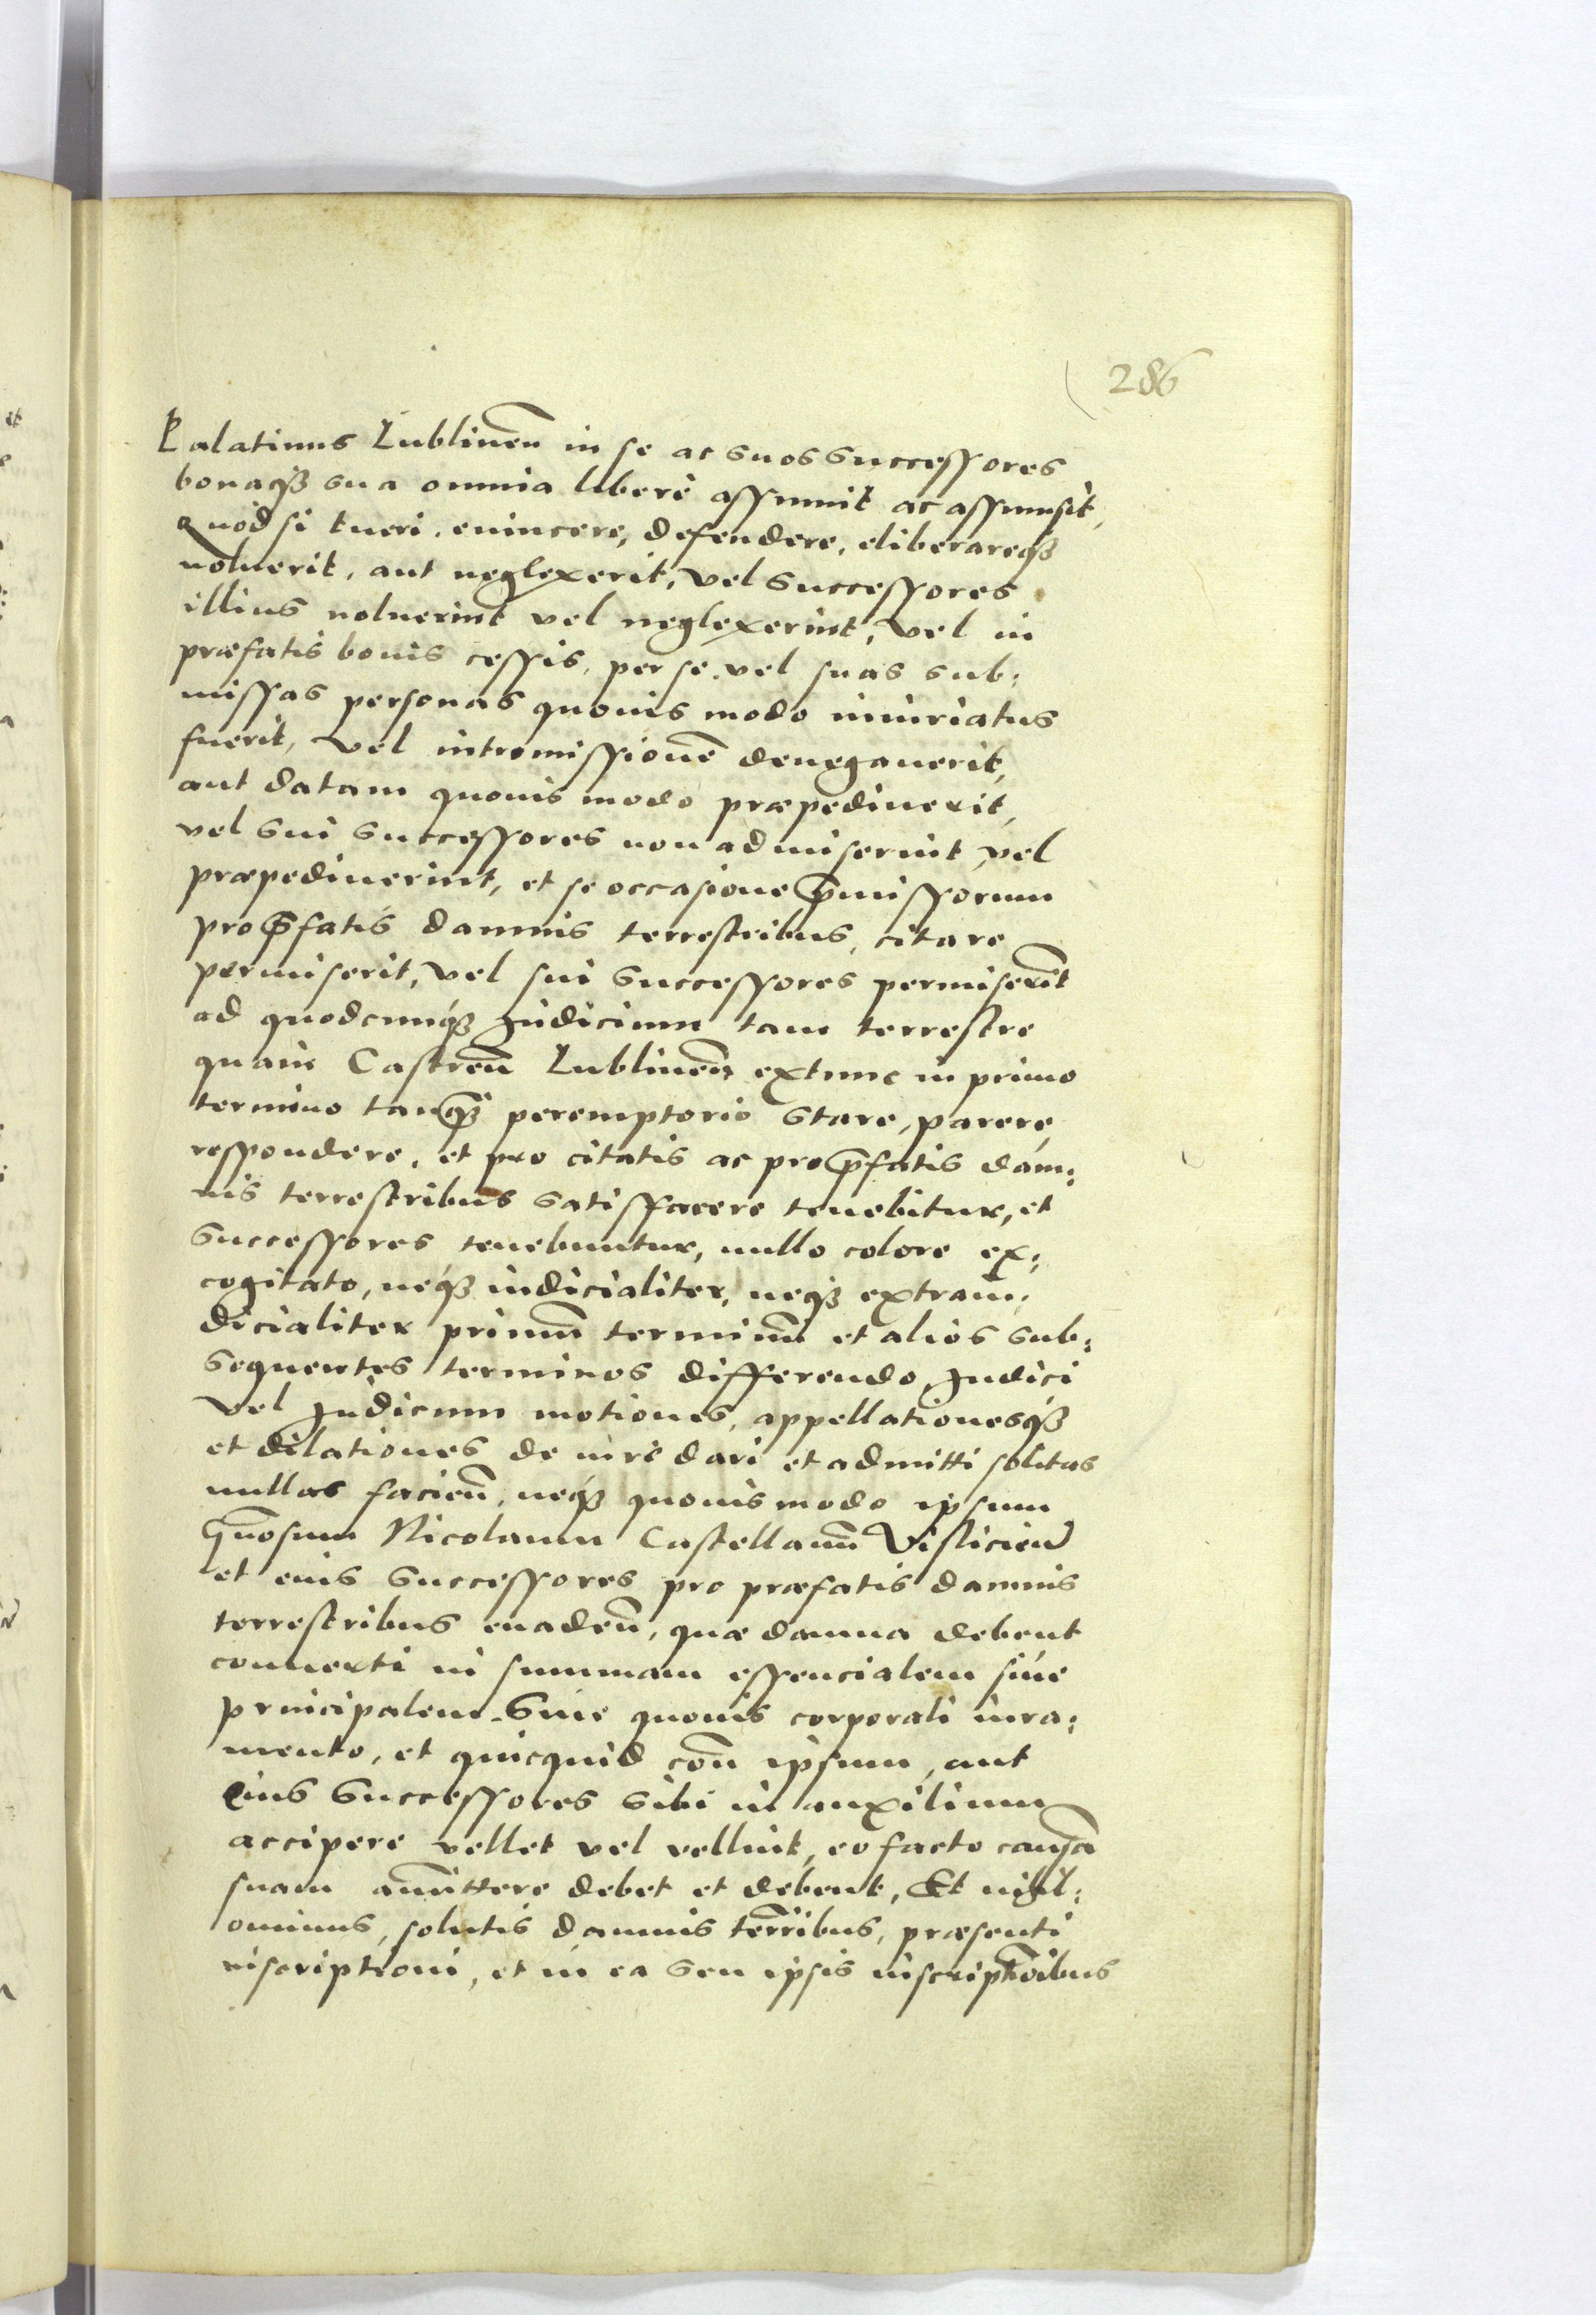 286
Palatinus Lublineñ in se ac suos successores
bonaqȝ sua omnia liberè assumit ac assumsit,
Quòd si tueri, euincere, defendere, eliberareqȝ
noluerit, aut neglexerit, vel successores
illius noluerint vel neglexerint, vel in
præfatis bonis cessis, per se vel suas sub:
missas personas quouis modo iniuriatus
fuerit, vel intromissionẽ denegauerit,
aut datam quouis modo præpediuerit,
vel sui successores non admiserint, vel
præpediuerint, et se occasione p̃missorum
pro p̃fatis damnis terrestribus, citare
permiserit, vel sui successores permiserĩt
ad quodcunqȝ Judicium tam terrestre
quam Castreñ Lublineñ extunc in primo
termino tanqȝ̃ peremptorio stare, parere,
respondere, et pro citatis ac pro p̃fatis dam:
nis terrestribus satisfacere tenebitur, et
successores tenebuntur, nullo colore ex:
cogitato, neqȝ iudicialiter, neqȝ extraiu:
dicialiter primũ terminũ et alios sub:
sequentes terminos differendo, Judici
vel Judicum motiones, appellationesqȝ
et dilationes de iure dari et admitti solitas
nullas facieñ, neqȝ quouis modo ipsum
G̃nosum Nicolaum Castellanũ Vislicieñ
et eius successores pro præfatis damnis
terrestribus euadeñ, quæ damna debent
conuerti in summam essencialem siue
principalem. Sine quouis corporali iura:
mento, et quicquid coñ ipsum, aut
eius successores sibi in auxilium
accipere vellet vel vellint, eo facto causã
suam amittere debet et debent, Et nihil:
ominus, solutis damnis terr̃ibus, præsenti
inscriptioni, et in ea seu ipsis inscript̃oibus